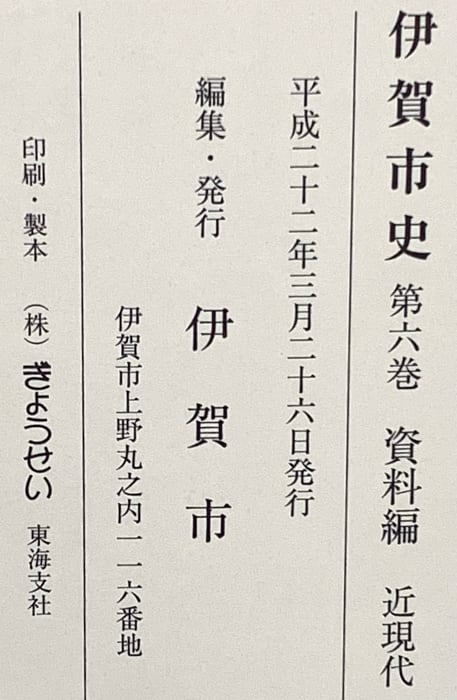 伊賀市史 第六巻 資料編 近現代
平成二十二年三月二十六日発行
編集・発行 伊賀市
伊賀市上野丸之内一一六番地
印刷・製本 (株)ぎょうせい 東海支社